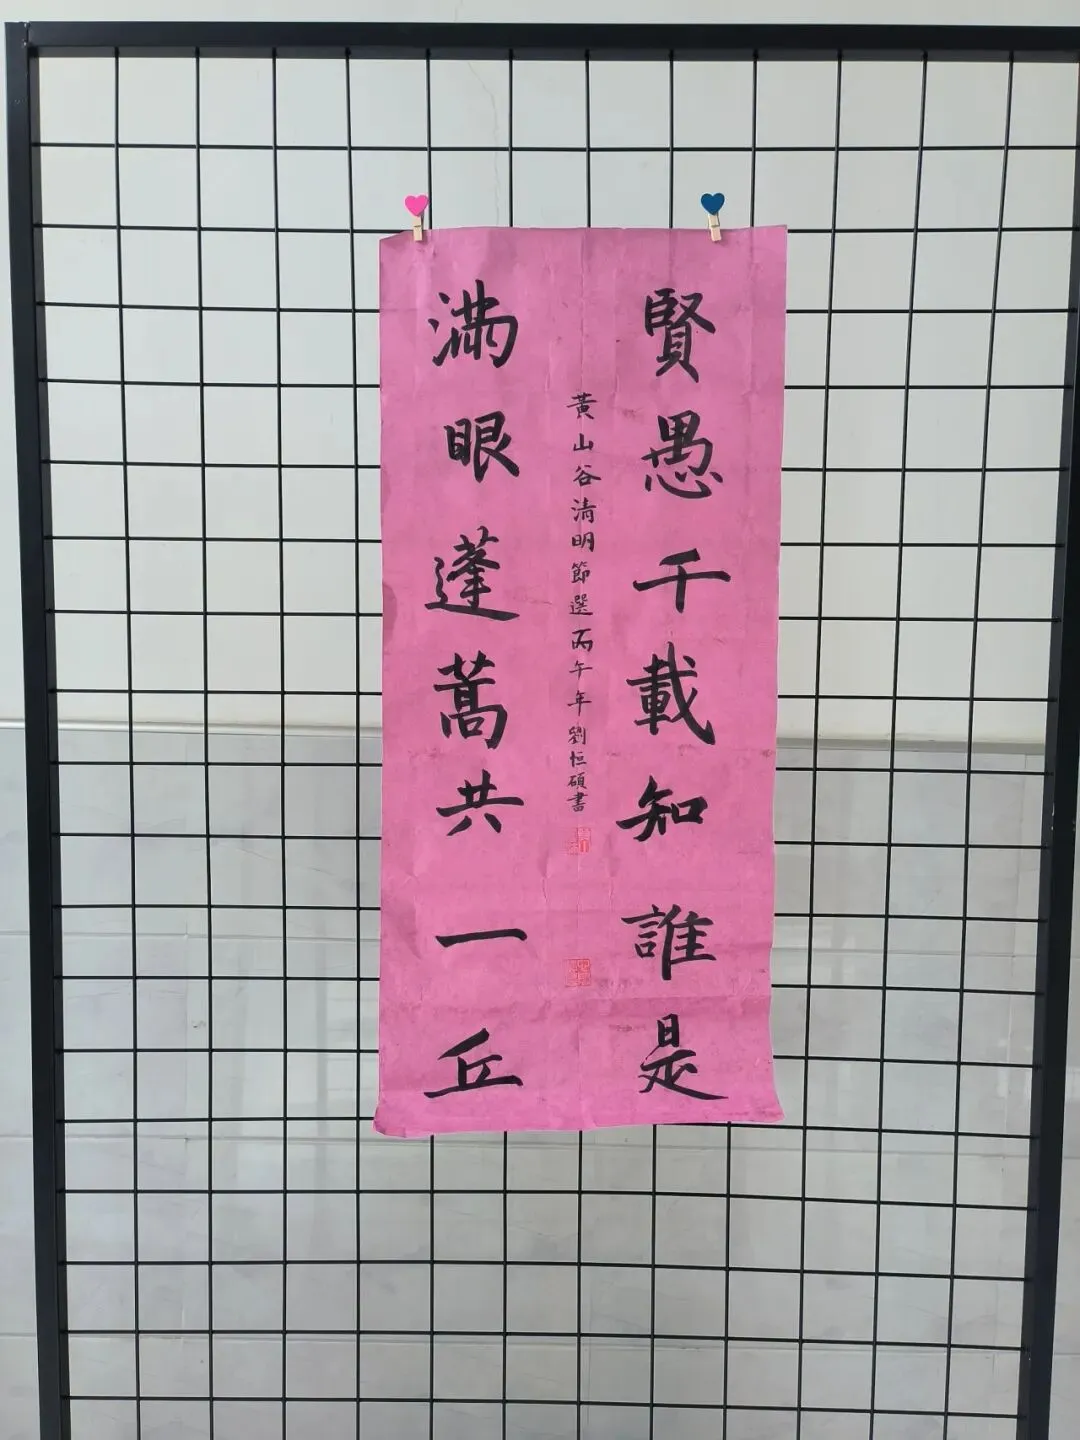 賢愚千載知誰是
滿眼蓬蒿共一丘
黃山谷清明節選丙午年劉恒碩書